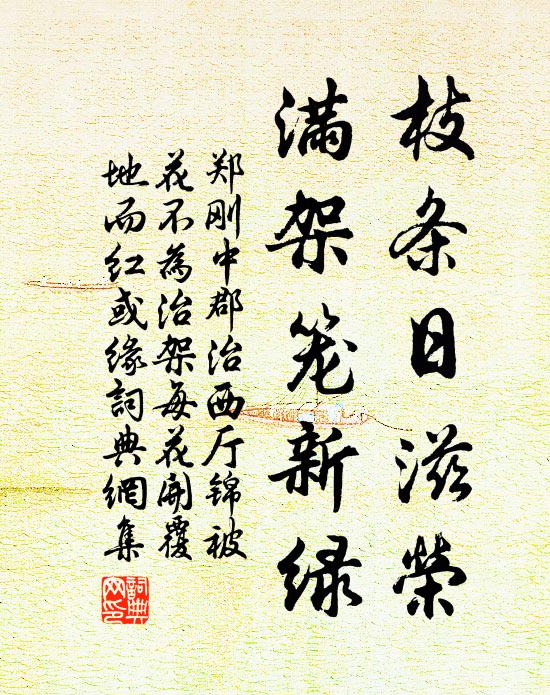 枝条日滋荣
满架笼新绿
郑刚中郡治西厅锦被
花不為治架每花開覆
地而红或缘詞典網集
詞典
网印